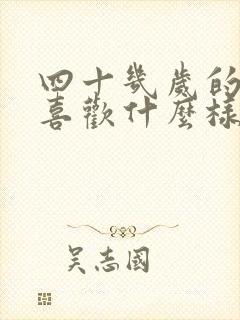 四十幾歲的
喜歡什麼樣
吴志國